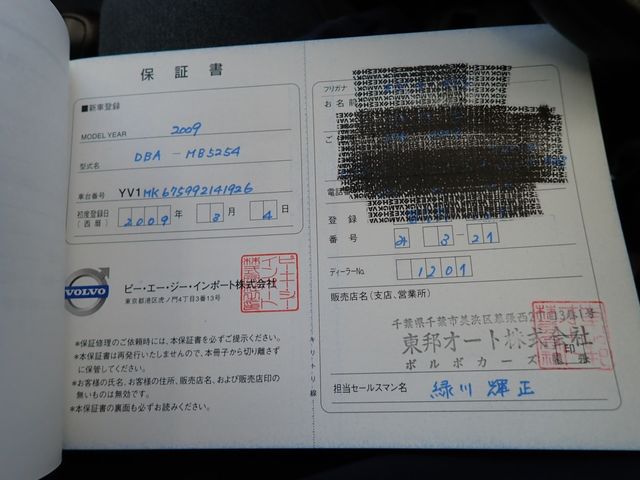 保証書
■新車登録
MODEL YEAR 2009
型式名 DBA-MB5254
車台番号 YV1MK675992141926
初度登録日 2009年 3月 4日
(西暦)
VOLVO
ピー・エー・ジー・インポート株式会社
東京都港区虎ノ門4丁目3番13号
*保証修理のご依頼時には、本保証書を必ずご提示ください。
*本保証書は再発行いたしませんので、本冊子から切り離さず
に保管してください。
*お客様の氏名、お客様の住所、販売店名、および販売店印の
無いものは無効です。
*本保証書の裏面も必ずお読みください。
キリトリ線
フリガナ
お名前
ご
電話
登録
番号 3-21
ディーラーNo. 1201
販売店名(支店、営業所)
千葉県千葉市美浜区幕張西2丁目3番1号
東邦オート株式会社
ボルボカーズ 幕張
印
担当セールスマン名 緑川 輝正